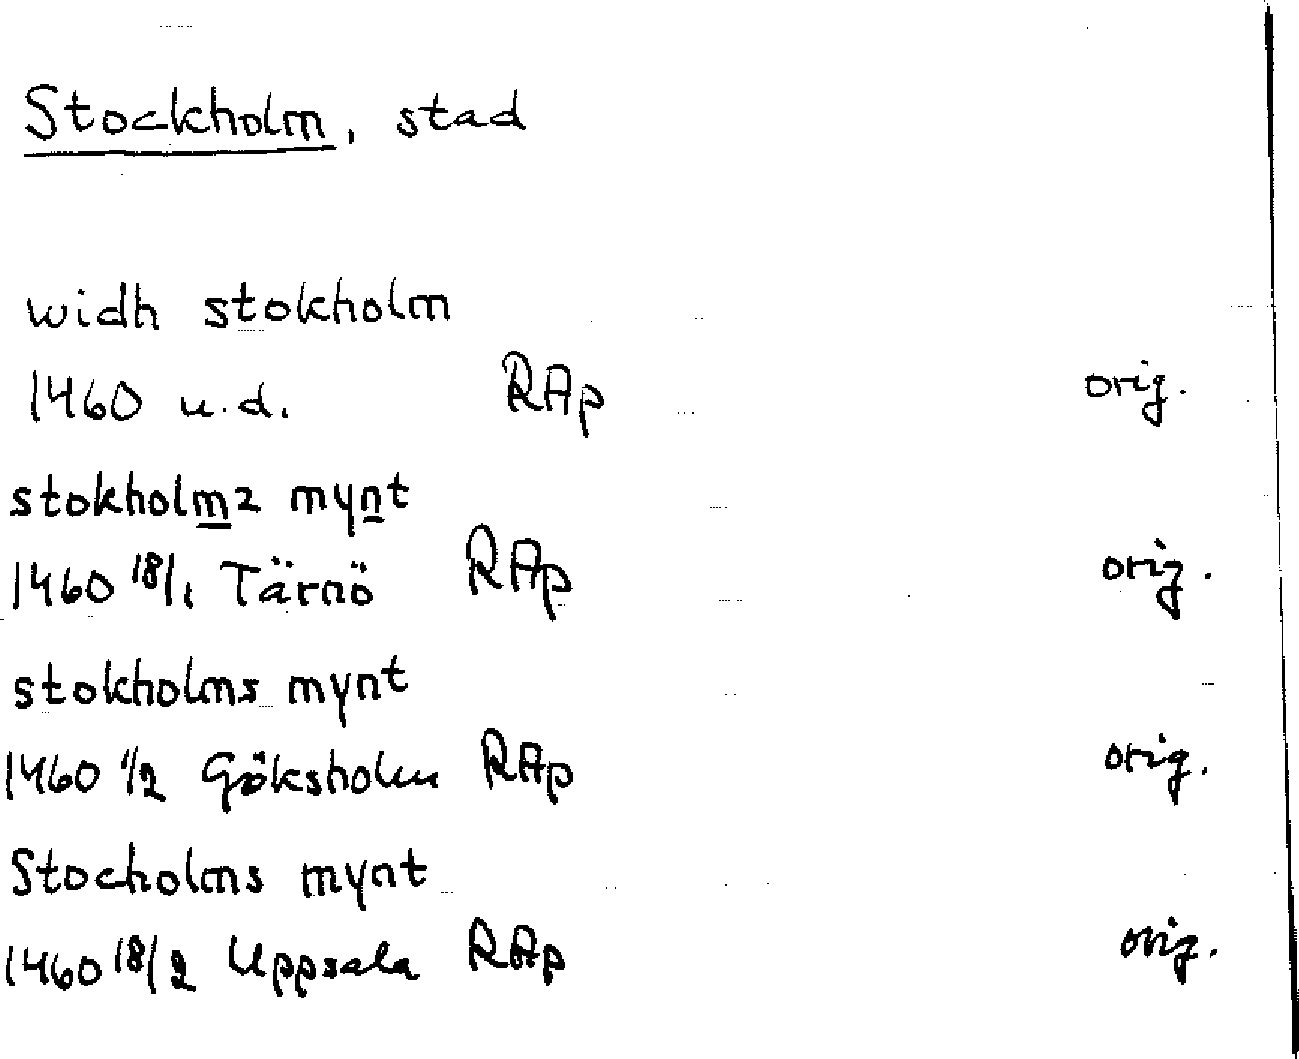 Stockholm, stad
widh stokholm
1460 u.d. RAp orig.
stokholmz mynt
1460 18/1 Tärnö RAp orig.
stokholms mynt
1460 1/2 Göksholm RAp orig.
Stocholms mynt
1460 18/2 Uppsala RAp orig.